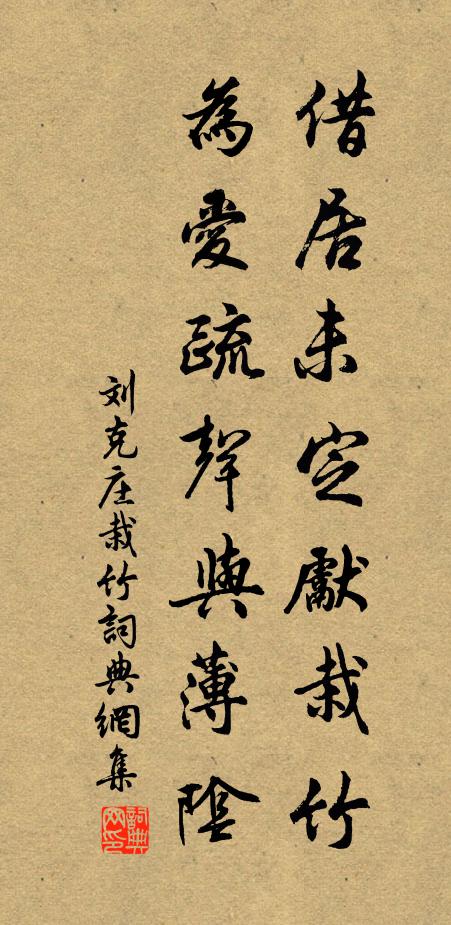 借居未定獻栽竹
為愛疏聲與薄陰
刘克庄栽竹詞典網集
詞典網印